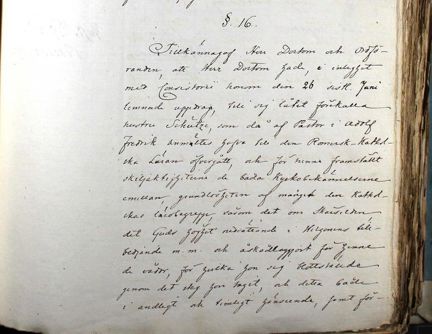 §. 16.
Tillkännagaf Herr Doctorn och Ordfö-
randen, att Herr Doctorn hade, i enlighet
med Consistorii honom den 26 sistl. Juni
lemnade uppdrag, till sig låtit förekalla
hustru Schütze, som då af Pastor i Adolf
fredrik anmältes hafva till den Romersk-Katol-
ska Läran öfvergått, och för henne framställt
skiljaktigheterne de båda Kyrkobekännelserne
emellan, grundlösheten af många den Kathol-
skas lärobegrepp, såsom det om Skärselden,
det Guds helgons i Helgonens till-
bedjande m. m. och åskådliggjort för henne
de vådor, för hvilka hon sig blottställde
genom det steg hon tagit, och detta både
i andligt och timligt hänseende, samt för-